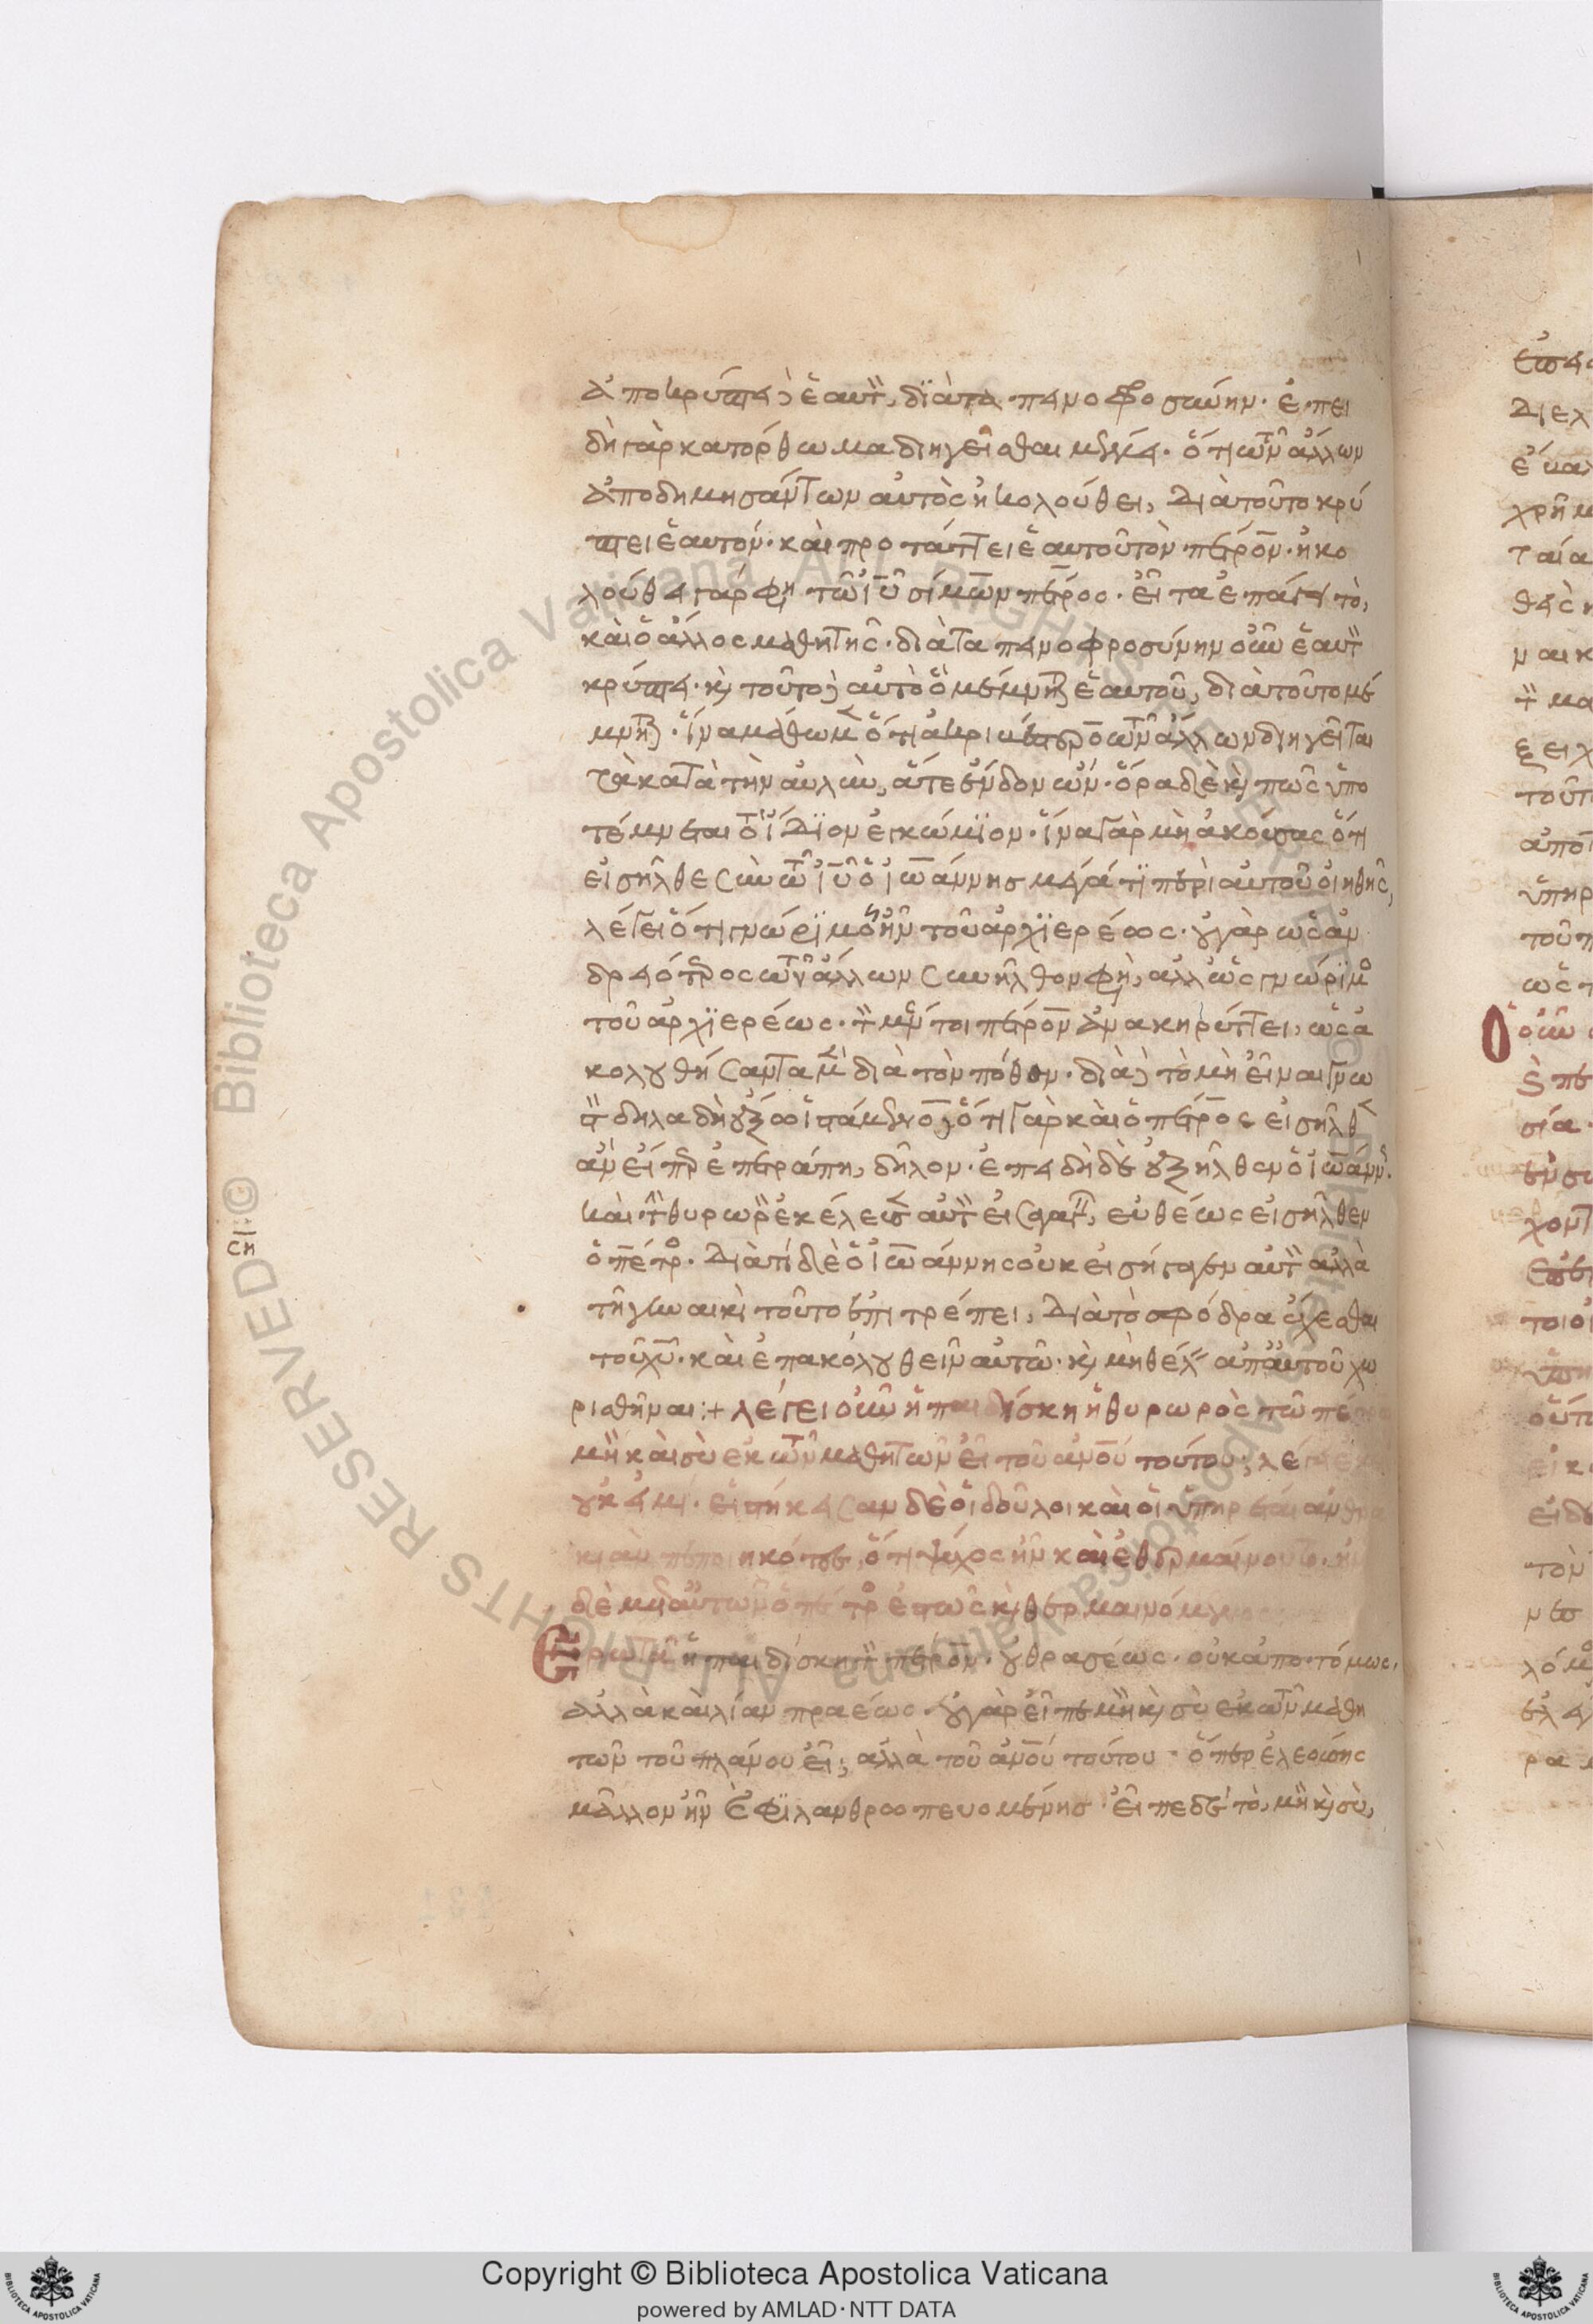 ἀποκρύπτει δὲ ἑαυτὸν, διὰ τὸ ταπεινοφροσύνην· ἐπει
δὴ γὰρ κατόρθωμα διηγεῖσθαι μέλλει· ὅτι τῶν ἄλλων
ἀποδημησάντων αὐτὸς ἠκολούθει, διὰ τοῦτο κρύ
πτει ἑαυτόν· καὶ προτάττει ἑαυτοῦ τὸν πέτρον· ἠκο
λούθει γάρ φη τῶ ιυ σίμων πέτρος· εἶτα ἐπάγει τὸ,
καὶ ὁ ἄλλος μαθητής· διὰ ταπεινοφροσύνην οὖν ἑαυτὸν
κρύπτει· κ τοῦτο δὲ αὐτὸ ὃ μέμνηται ἑαυτοῦ, διὰ τοῦτο μέ
μνηται· ἵνα μάθωμεν ὅτι ἀκριβέστερον τῶν ἄλλων διηγεῖται
τὰ κατὰ τὴν αὐλὴν, ἅτε ἔνδον ὤν· ὅρα δὲ κ πῶς ὑπο
τέμνεται τὸ ἴδιον ἐγκώμιον· ἵνα γὰρ μὴ ἀκούσας ὅτι
εἰσῆλθε σὺν τῶ ιυ ὁ ἰωάννης μέγα τι περὶ αὐτοῦ οἰηθῆς,
λέγει ὅτι γνώριμος ἦν τοῦ ἀρχιερέως· οὐ γὰρ ὡς ἀν
δρειότερος τῶν ἄλλων συνῆλθον φη, ἀλλ ὡς γνώριμος
τοῦ ἀρχιερέως· τὸν μέντοι πέτρον ἀνακηρύττει, ὡς ἀ
κολουθήσαντα μὲν διὰ τὸν πόθον· διὰ δὲ τὸ μὴ εἶναι γνω
στὸν δηλαδὴ ἔξω ἱστάμενον· ὅτι γὰρ καὶ ὁ πέτρος εἰσῆλθεν
ἂν εἴπερ ἐπετράπη, δῆλον· ἐπειδὴ δὲ ἐξῆλθεν ὁ ἰωάννης.
καὶ τὴν θυρωρὸν ἐκέλευσεν αὐτὸν εἰσαγαγεῖν, εὐθέως εἰσῆλθεν
ὁ πέτρος. Διὰ τί δὲ ὁ ἰωάννης οὐκ εἰσήγαγεν αὐτὸν ἀλλὰ
τῆ γυναικὶ τοῦτο ἐπιτρέπει, Διὰ τὸ σφόδρα ἔχεσθαι
τοῦ χυ· καὶ ἐπακολουθεῖν αὐτῶ· κ μὴ θέλειν ἀπ αὐτοῦ χω
ρισθῆναι :+ λέγει οὖν ἡ παιδίσκη ἡ θυρωρὸς τῶ πέτρω
μὴ καὶ σὺ ἐκ τῶν μαθητῶν εἶ τοῦ ανου τούτου; λέγει ἐκεῖνος
οὐκ εἰμί· εἱστήκεισαν δὲ οἱ δοῦλοι καὶ οἱ ὑπηρέται ἀνθρα
κιὰν πεποιηκότες, ὅτι ψύχος ἦν καὶ ἐθερμαίνοντο· ἦν
δὲ μετ αὐτῶν ὁ πέτρος ἑστὼς κ θερμαινόμενος
Ἐρωτᾶ ἡ παιδίσκη τὸν πέτρον· οὐ θρασέως· οὐκ ἀποτόμως,
ἀλλὰ καὶ λίαν πραέως· οὐ γὰρ εἶπε μὴ κ σὺ ἐκ τῶν μαθη
τῶν τοῦ πλάνου εἶ; ἀλλὰ τοῦ ανου τούτου· ὅπερ ἐλεούσης
μᾶλλον ἦν κ φιλανθρωπευομένης· εἶπε δὲ τὸ, μὴ κ σὺ,